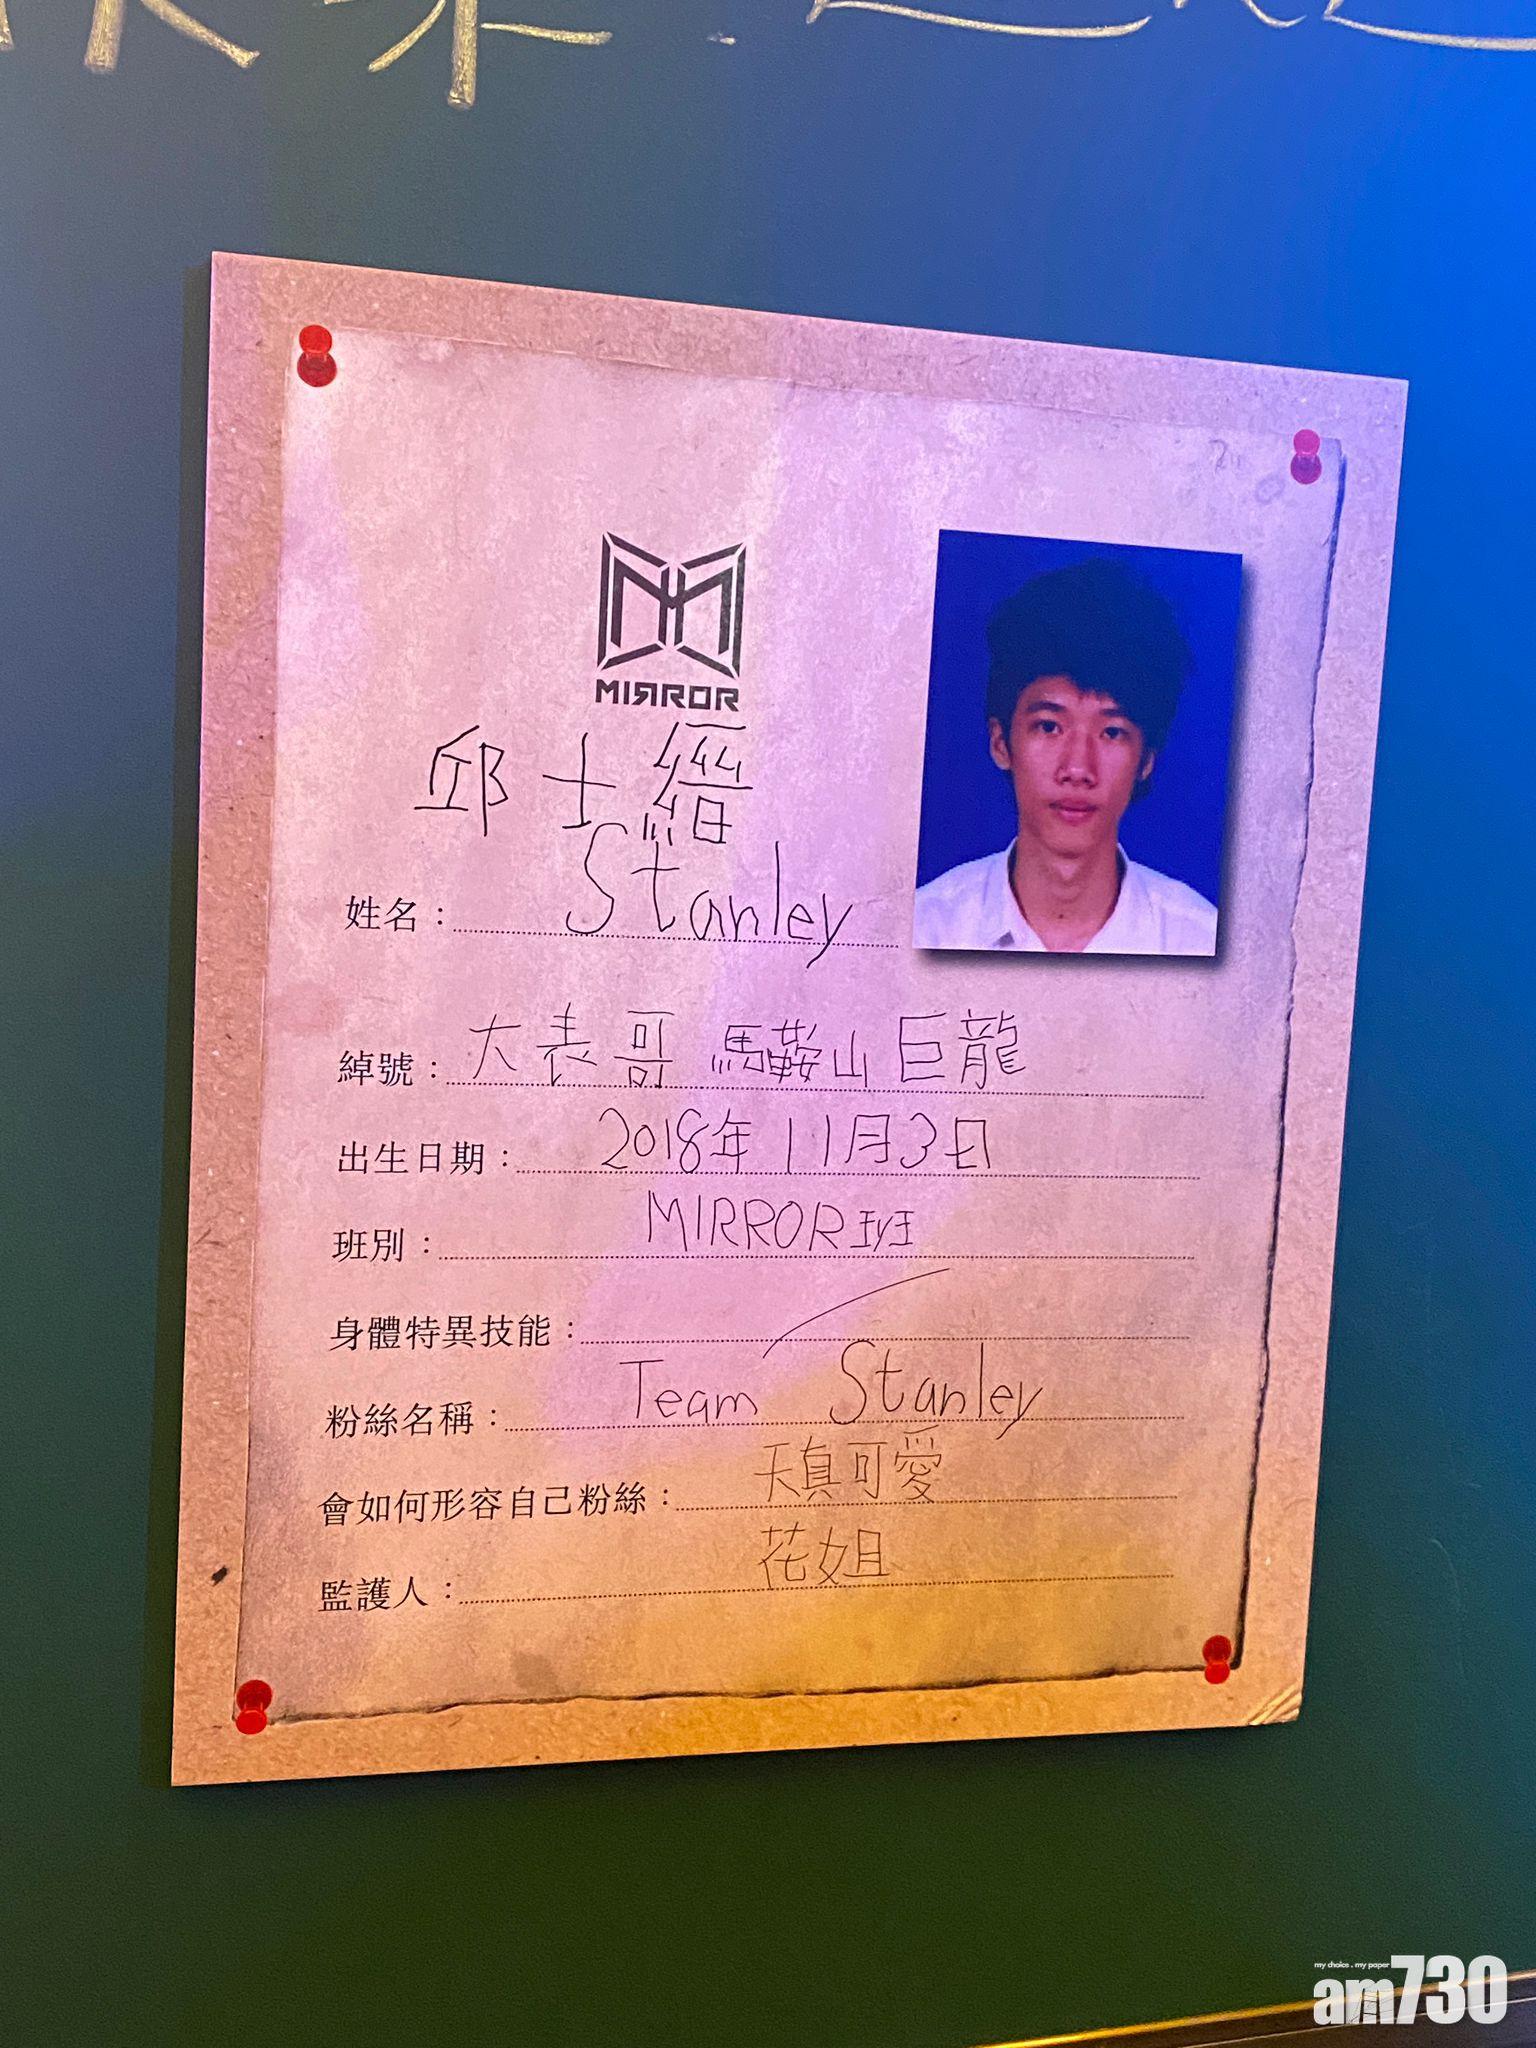 MIRROR
邱士縉
姓名：Stanley
綽號：大表哥 馬鞍山巨龍
出生日期：2018年11月3日
班別：MIRROR班
身體特異技能：
粉絲名稱：Team Stanley
會如何形容自己粉絲：天真可愛
監護人：花姐
my choice . my paper
am730